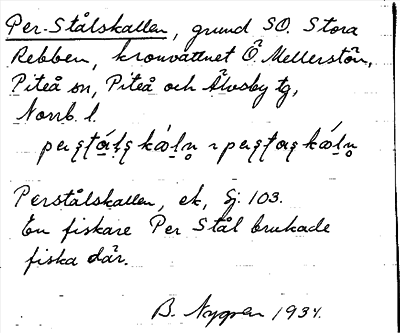 Per-Stålskallen, grund SO. Stora
Rebben, kronvattnet Ö. Mellerstön,
Piteå sn, Piteå och Älvsby tg,
Norrb. l.
Perstålskallen, ek, Sj. 103.
En fiskare Per Stål brukade
fiska där.
B. Nygren 1934.